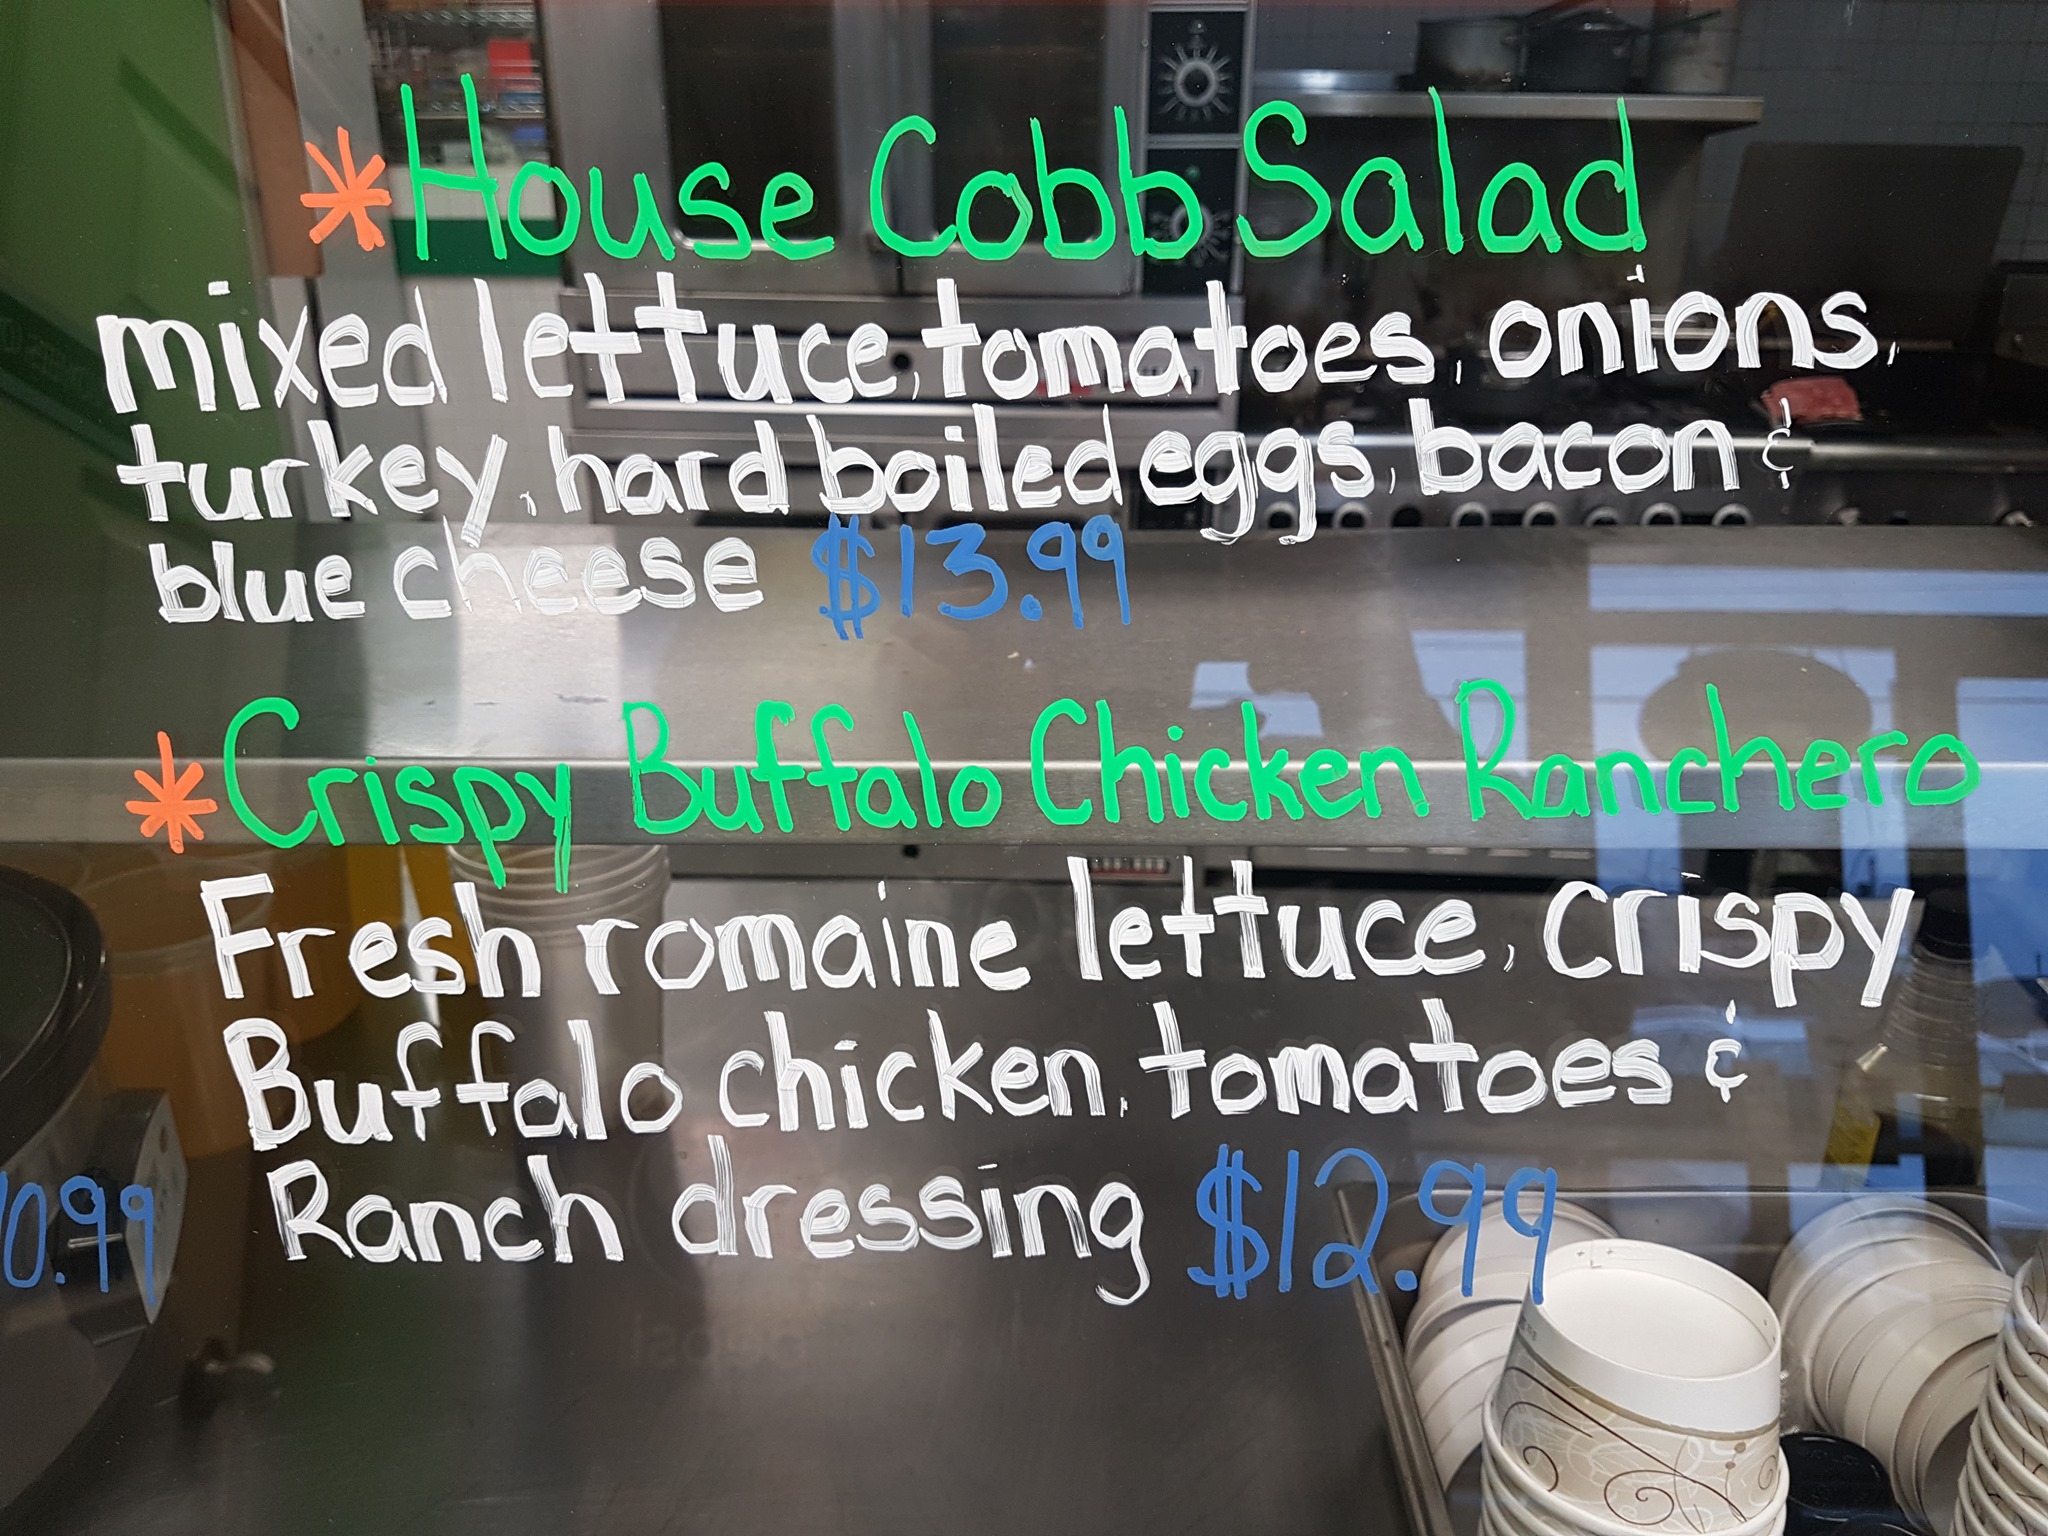 *House Cobb Salad
mixed lettuce, tomatoes, onions,
turkey, hard boiled eggs, bacon &
blue cheese $13.99
*Crispy Buffalo Chicken Ranchero
Fresh romaine lettuce, crispy
Buffalo chicken, tomatoes &
Ranch dressing $12.99
10.99